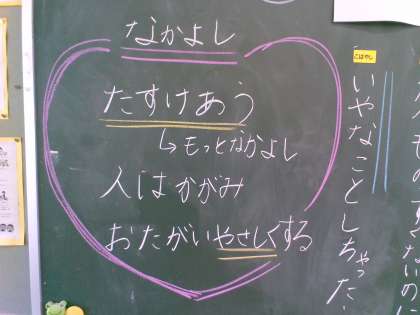 なかよし
たすけあう
↳もっとなかよし
人はかがみ
おたがいやさしくする
いやなことしちゃった